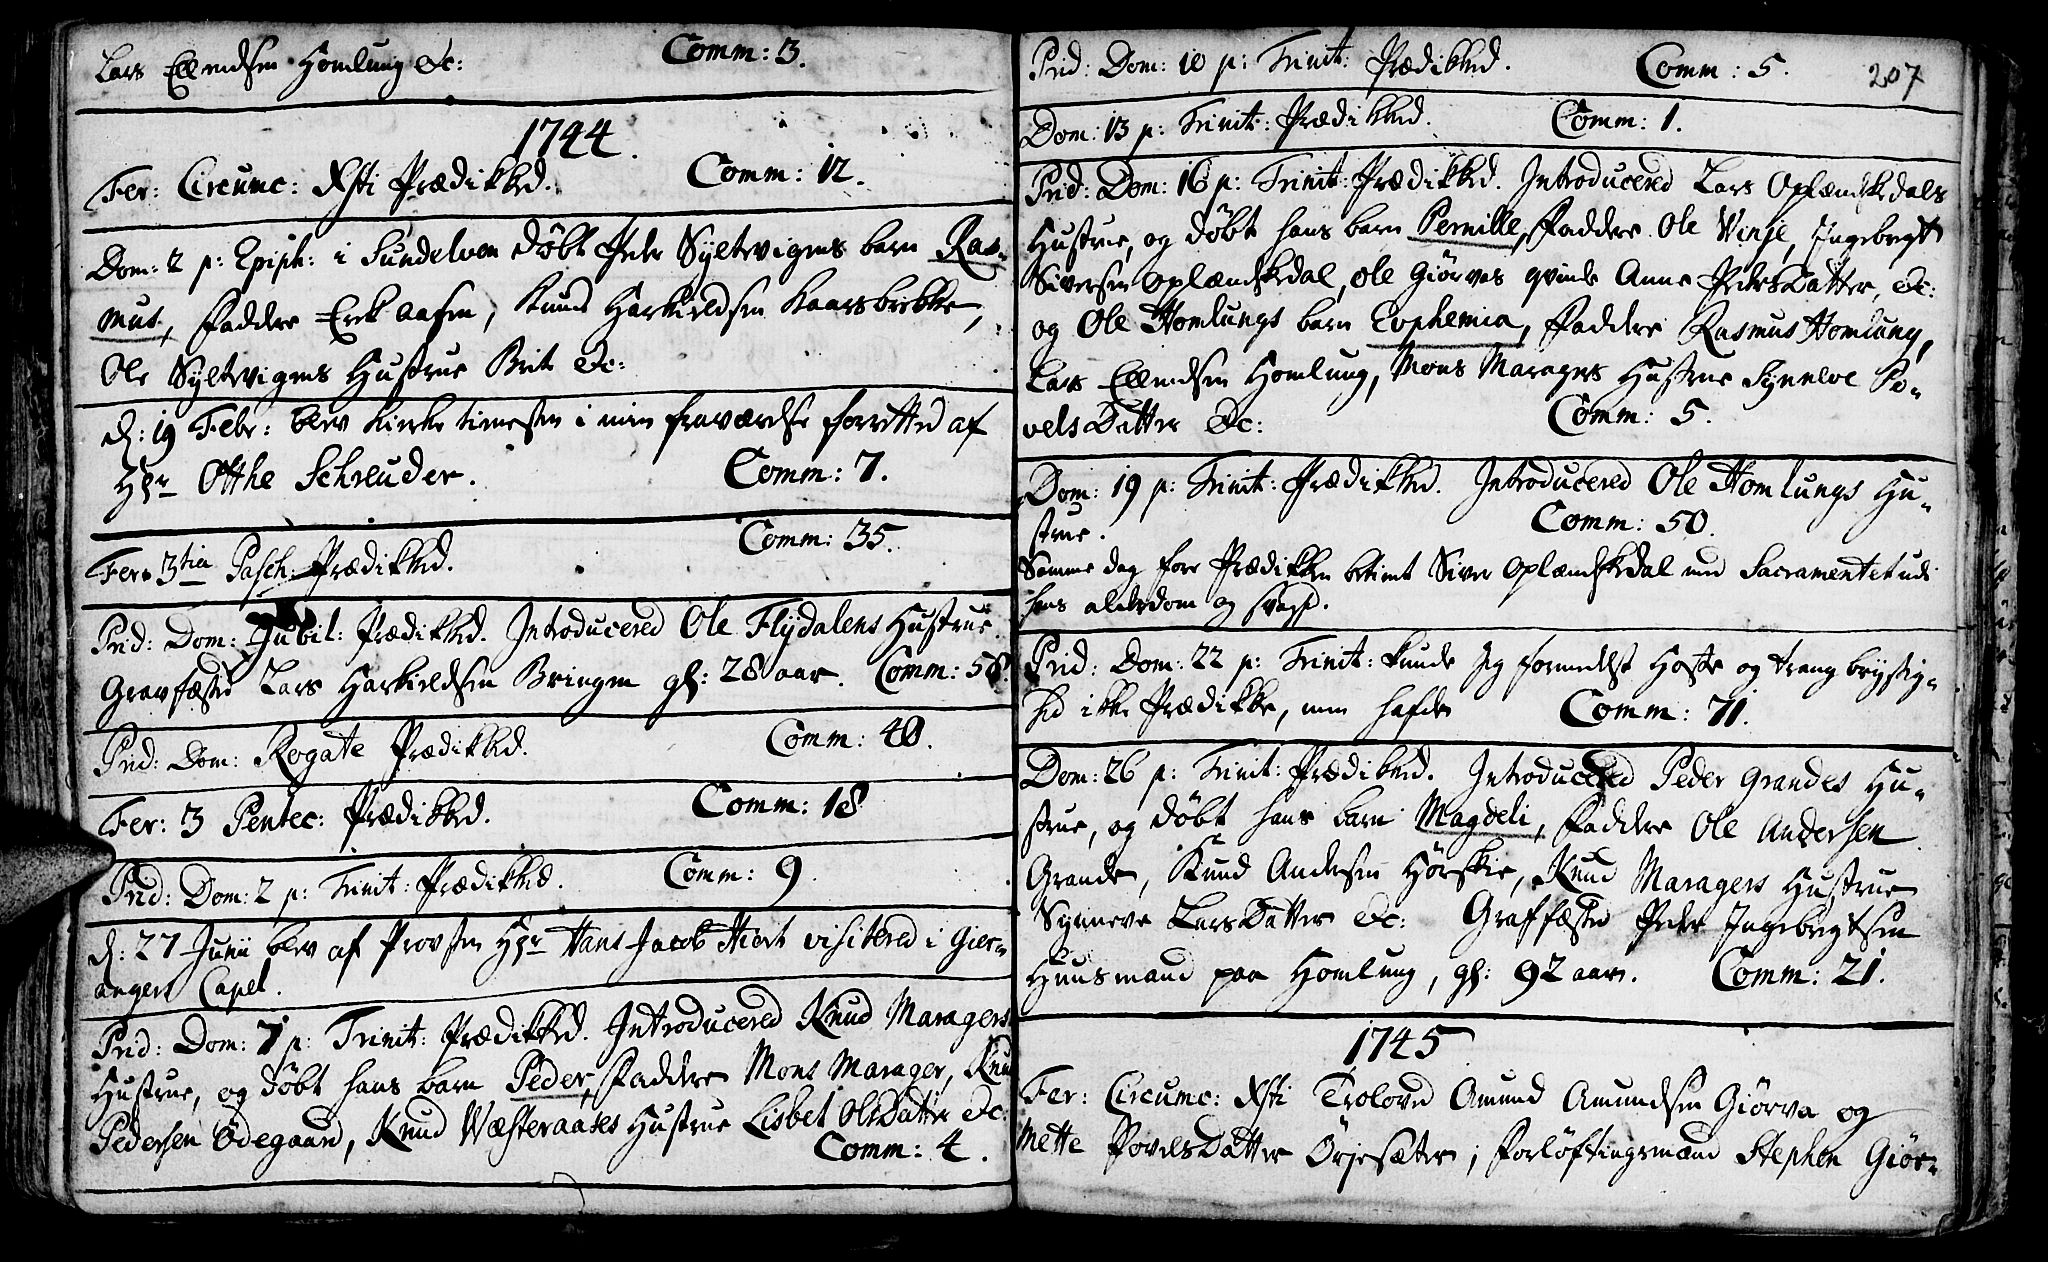 Lars Ellendsen Homlung &c: Comm: 3.
1744.
Fer: Circumc: Xsti Prædikked. Comm: 12.
Dom: 2 p: Epiph: i Sundelven Døbt Peder Syltevigens barn Ras-
mus, Faddere Erik Aasen, Knud Harkieldsen Kaarsbrekke,
Ole Syltevigens Hustrue Brit &c:
d: 19 Febr: blev Kirke tienesten i min fraværelse forrettet af
Hr Otthe Schreuder. Comm: 7.
Fer: 3tia Pasch: Prædikked. Comm: 35.
Prid: Dom: Jubil: Prædikked. Introducered Ole Flydalens Hustrue.
Gravfæsted Lars Harkieldsen Bringen gl: 28 aar. Comm: 58.
Prid: Dom: Rogate Prædikked. Comm: 40.
Fer: 3 Pentec: Prædikked. Comm: 18
Prid: Dom: 2 p: Trinit: Prædikked. Comm: 9.
d: 27 Junii blev af Provsten Hr Hans Jacob Hiort visitered i Gier-
angers Capel.
Prid: Dom: 7 p: Trinit: Prædikked. Introducered Knud Maragers
Hustrue, og døbt hans barn Peder, Faddere Mons Marager, Knud
Pedersen Ødegaard, Knud Wæsteraases Hustrue Lisbet OlsDatter &c:
Comm: 4.
207
Prid: Dom: 10 p: Trinit: Prædikked. Comm: 5.
Dom: 13 p: Trinit: Prædikked. Comm: 1.
Prid: Dom: 16 p: Trinit: Prædikked. Introducered Lars Oplændskedals
Hustrue, og døbt hans barn Pernille, Faddere Ole Vinje, Ingebregt
Siversen Oplændskedal, Ole Giørves qvinde Anne PedersDatter, &c:
og Ole Homlungs barn Euphemia, Faddere Rasmus Homlung,
Lars Ellendsen Homlung, Mons Maragers Hustrue Synneve Po-
velsDatter &c: Comm: 5.
Dom: 19 p: Trinit: Prædikked. Introducered Ole Homlungs Hu-
strue. Comm: 50.
Samme dag fore Prædikken betient Siver Oplændskedal med Sacramentet udi
hans alderdom og .
Prid: Dom: 22 p: Trinit: kunde jeg formedelst Hoste og trang brystig-
hed ikke Prædikke, men hafde Comm: 71.
Dom: 26 p: Trinit: Prædikked. Introducered Peder Grandes Hu-
strue, og døbt hans barn Magdeli, Faddere Ole Andersen
Grande, Knud Andersen Hørskie, Knud Maragers Hustrue
Synneve LarsDatter &c: Graffæsted Peder Ingebregtsen
Huusmand paa Homlung, gl: 92 aar. Comm: 21.
1745
Fer: Circumc: Xsti Trolovd Amund Amundsen Giørva og
Mette PovelsDatter Ørjesæter, Forløftingsmænd Stephen Giør-